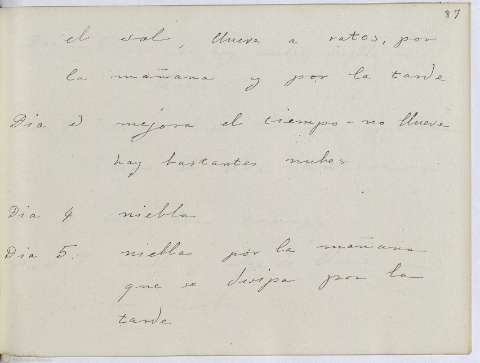 87
el sol, llueve a ratos, por
la mañana y por la tarde
Dia 3 mejora el tiempo - no llueve
hay bastantes nubes
Dia 4 niebla
Dia 5. niebla por la mañana
que se disipa por la
tarde